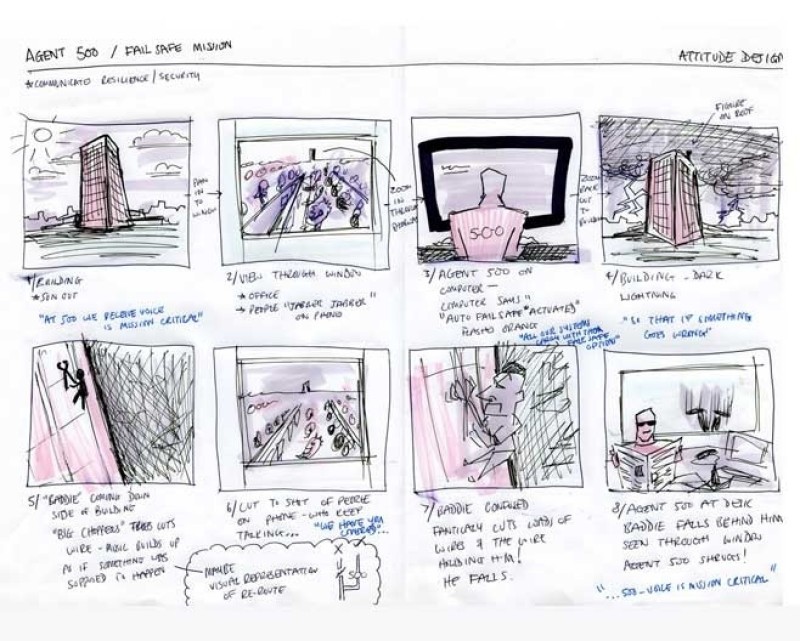 AGENT 500 / FAIL SAFE MISSION
ATTITUDE DESIGN
* COMMUNICATE RESILIENCE / SECURITY
FIGURE
ON ROOF
PAN
IN
TO
WINDOW
ZOOM
IN
THROUGH
WINDOW
ZOOM
BACK
OUT
TO
BUILDING
500
1/ BUILDING
* SUN OUT
"AT 500 WE BELIEVE VOICE
IS MISSION CRITICAL"
2/ VIEW THROUGH WINDOW
* OFFICE
→ PEOPLE "JABBER JABBER"
ON PHONE
3/ AGENT 500 ON
COMPUTER —
COMPUTER SAYS "
"AUTO FAILSAFE "ACTIVATED"
FLASHES ORANGE
"ALL OUR SYSTEMS
COME WITH THEIR
FAIL SAFE
OPTION"
4/ BUILDING - DARK
LIGHTNING
"SO THAT IF SOMETHING
GOES WRONG"
5/ "BADDIE" COMING DOWN
SIDE OF BUILDING
"BIG CHOPPERS" CUTS
WIRE - MUSIC BUILDS UP
AS IF SOMETHING WAS
SUPPOSED TO HAPPEN
6/ CUT TO SHOT OF PEOPLE
ON PHONE - WHO KEEP
TALKING...
"WE HAVE YOU
COVERED"...
MAYBE
VISUAL REPRESENTATION
OF RE-ROUTE
500
7/ BADDIE CONFUSED
FRANTICALLY CUTS LOADS OF
WIRES & THE WIRE
HOLDING HIM!
HE FALLS.
8/ AGENT 500 AT DESK
BADDIE FALLS BEHIND HIM
SEEN THROUGH WINDOW
AGENT 500 SHRUGS!
"...500 - VOICE IS MISSION CRITICAL"